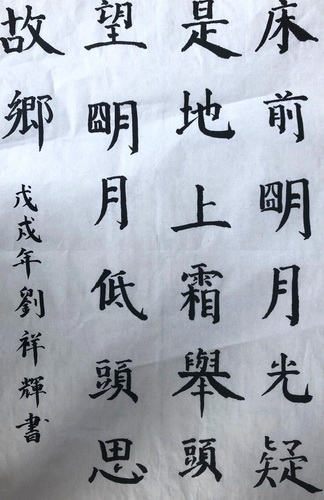 床前明月光疑
是地上霜舉頭
望明月低頭思
故鄉
戊戌年劉祥輝書